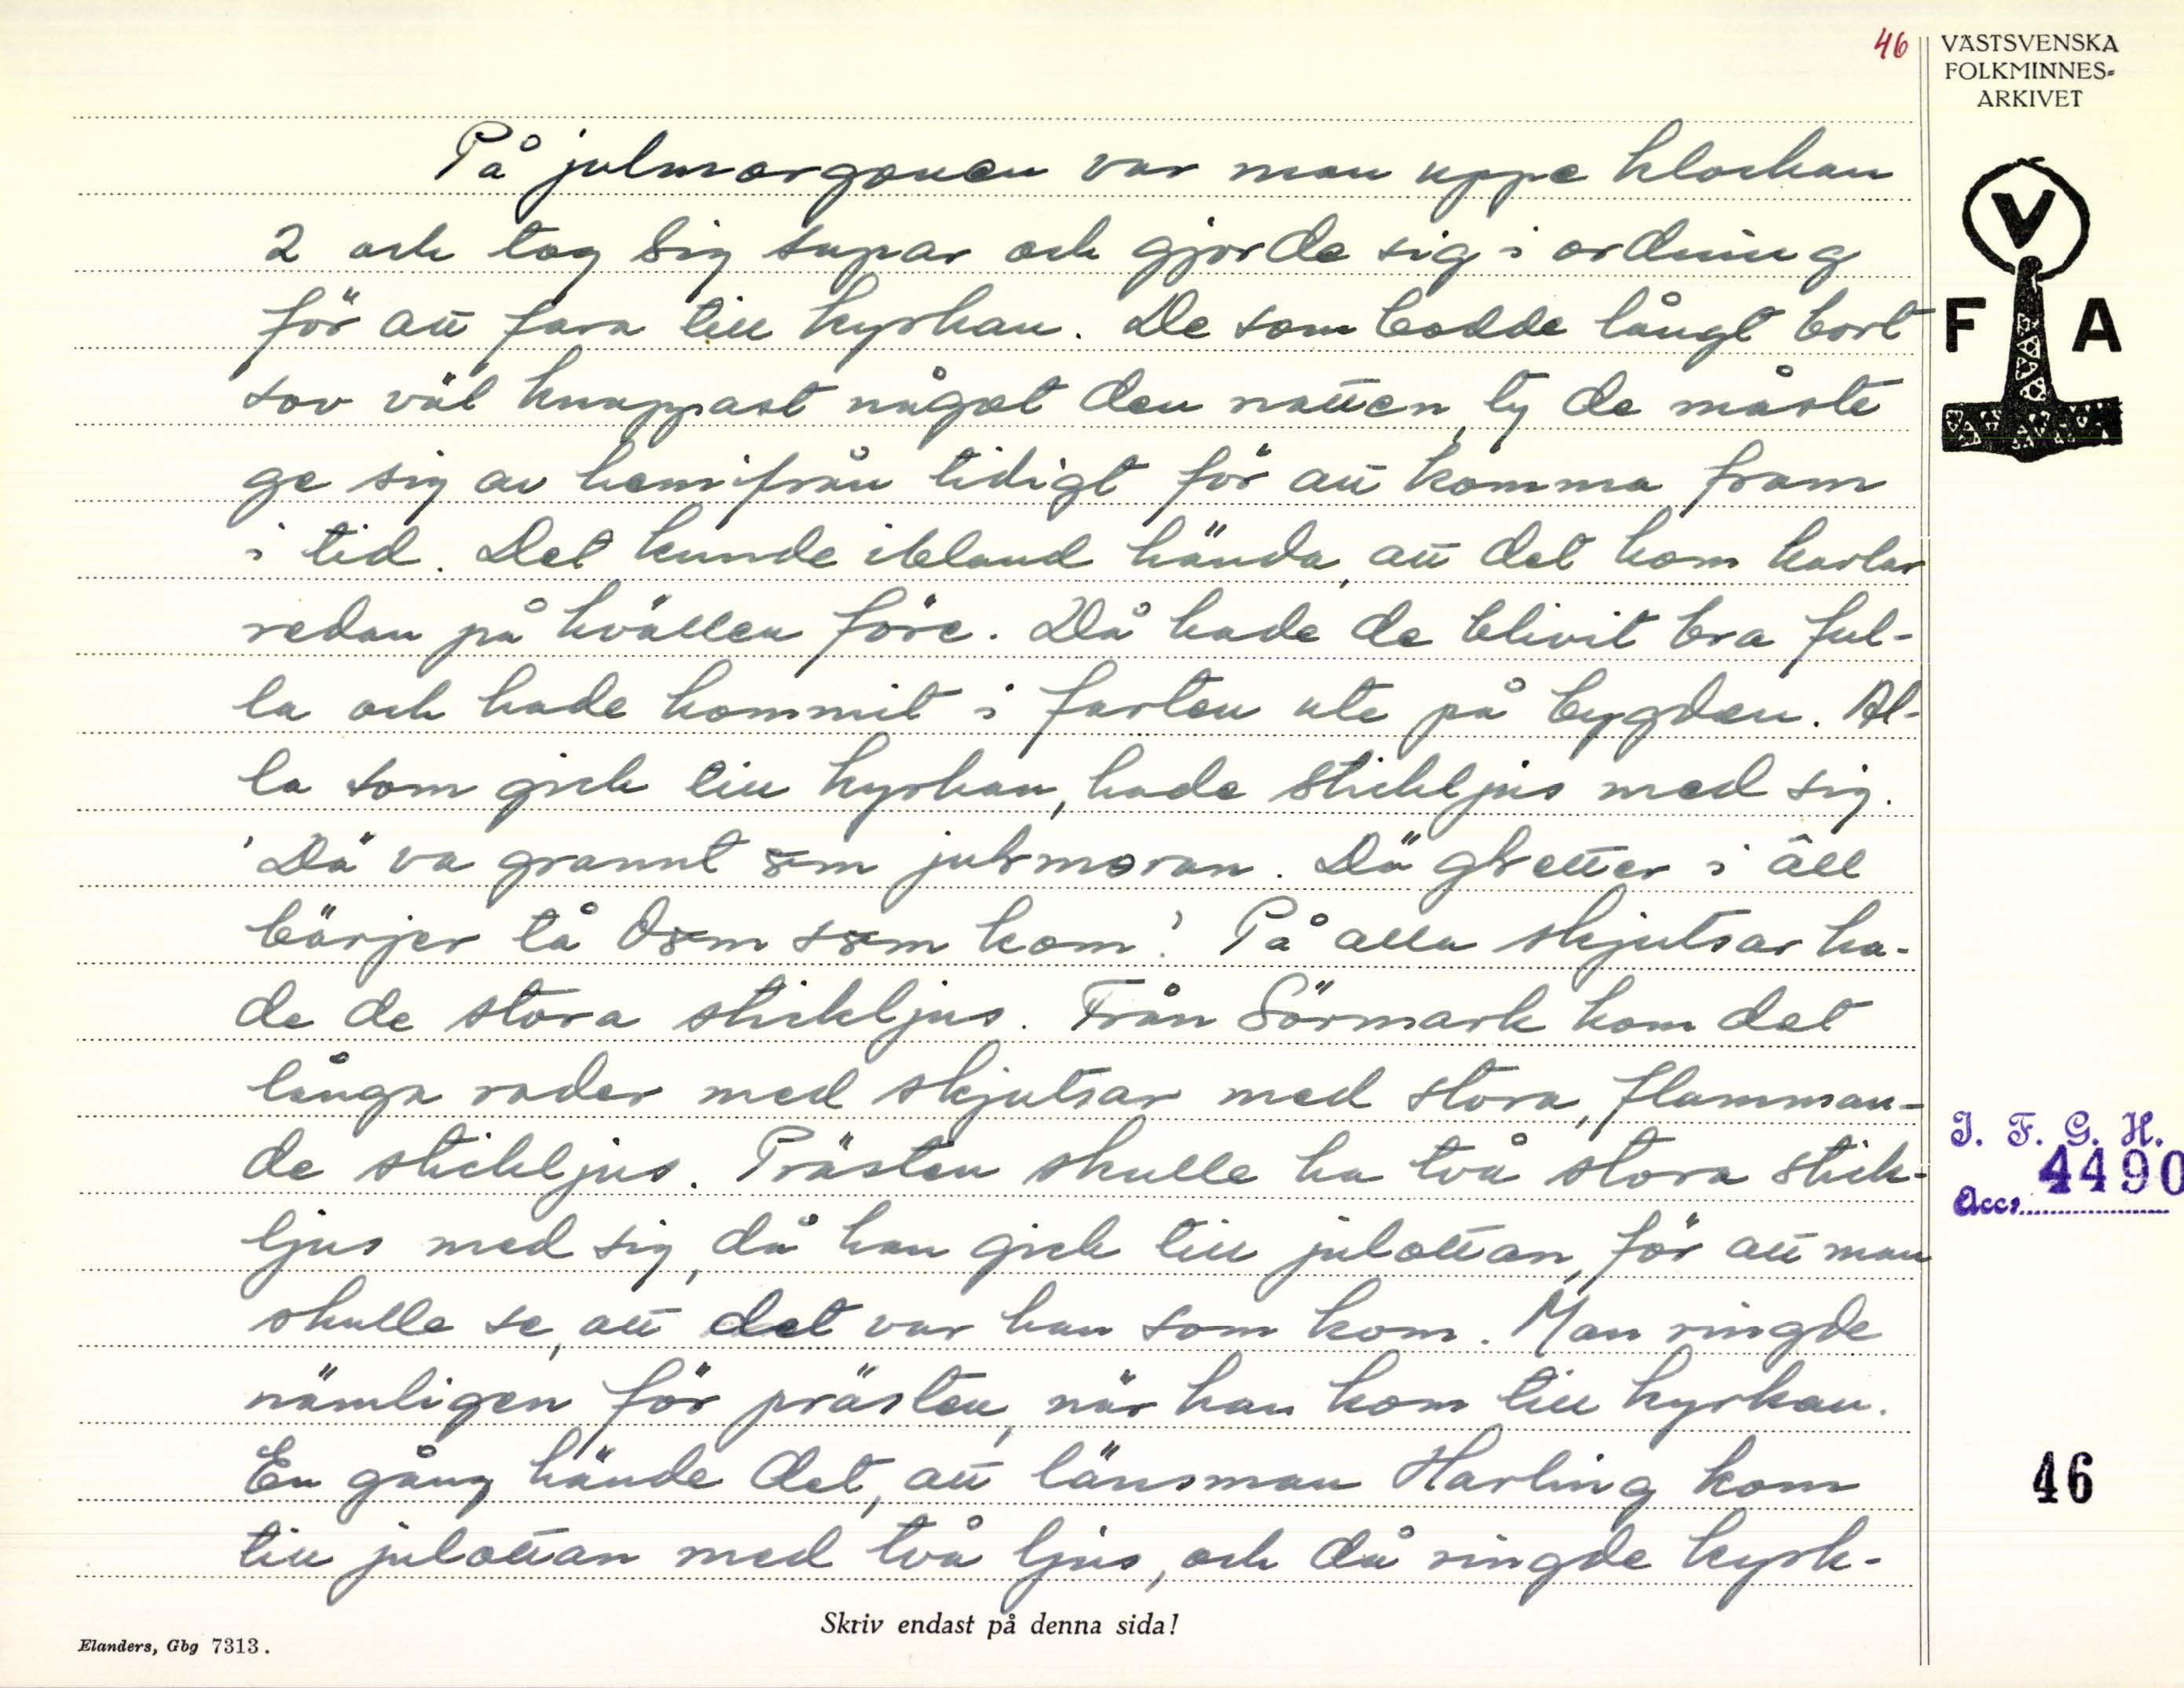 46
VÄSTSVENSKA
FOLKMINNES-
ARKIVET
På julmorgonen var man uppe klockan
2 och tog sig supar och gjorde sig i ordning
för att fara till kyrkan. De som bodde långt bort
sov väl knappast något den natten, ty de måste
ge sig av hemifrån tidigt för att komma fram
i tid. Det kunde ibland hända, att det kom karlar
redan på kvällen före. Då hade de blivit bra ful-
la och hade kommit i farten ute på bygden. Al-
la som gick till kyrkan, hade stickljus med sig.
'Dä va grannt om julsmoran. Dä gletter i åll
bärjer tå dom som kom.' På alla skjutsar ha-
de de stora stickljus. Från Sörmark kom det
långa rader med skjutsar med stora, flamman-
de stickljus. Prästen skulle ha två stora stick-
ljus med sig, då han gick till julottan, för att man
skulle se, att det var han som kom. Man ringde
nämligen för prästen, när han kom till kyrkan.
En gång hände det, att länsman Harling kom
till julottan med två ljus, och då ringde kyrk-
V
F A
I. F. G. H.
4490
Acc.
46
Skriv endast på denna sida!
Elanders, Gbg 7313.